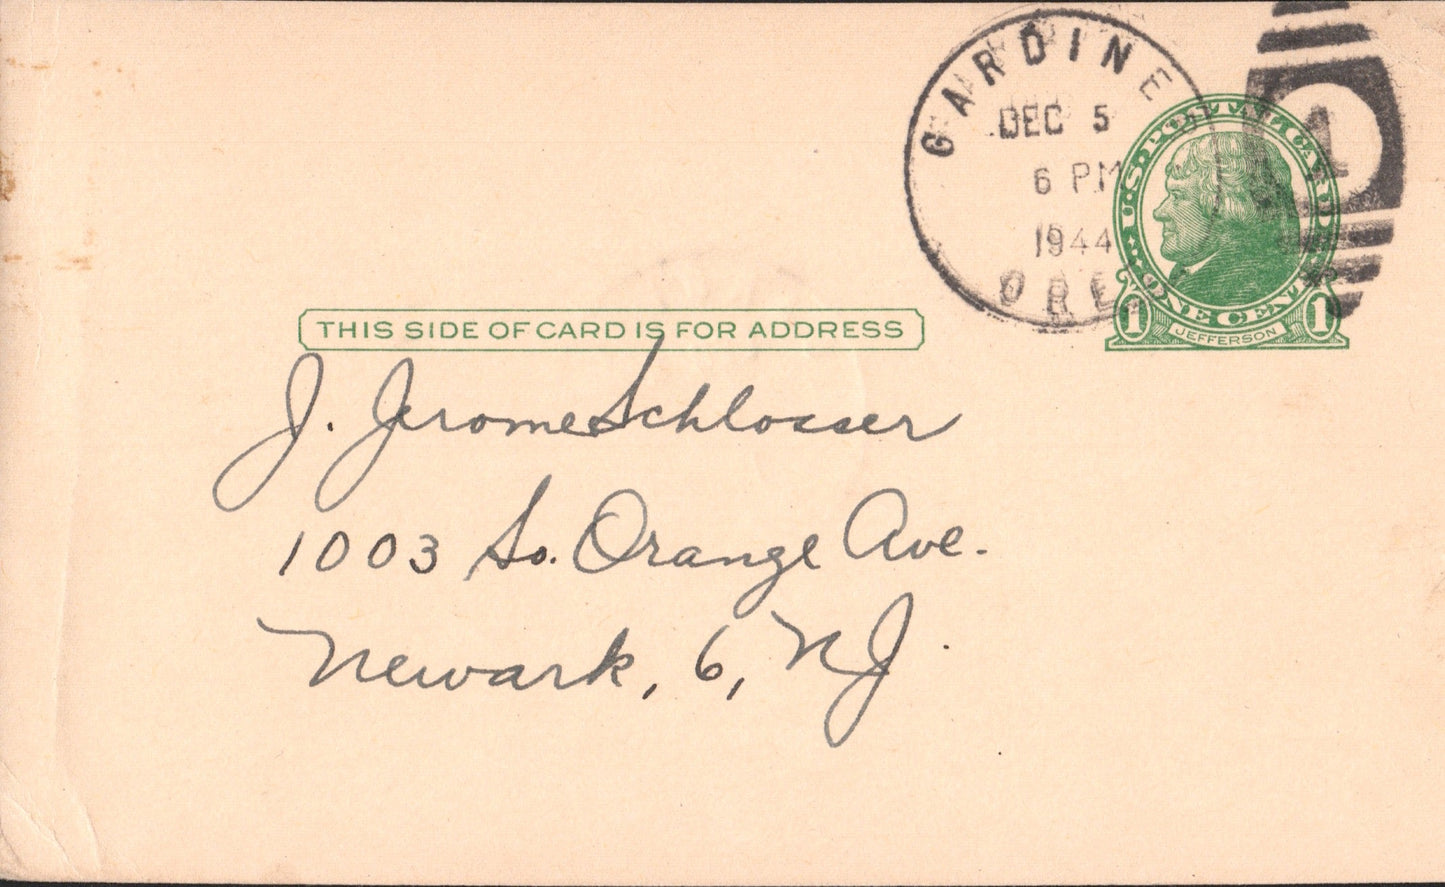 GARDINE
DEC 5
6 PM
1944
ORE
1
U.S. POSTAL CARD
ONE CENT
1 JEFFERSON 1
THIS SIDE OF CARD IS FOR ADDRESS
J. Jerome Schlosser
1003 So. Orange Ave.
Newark, 6, NJ.